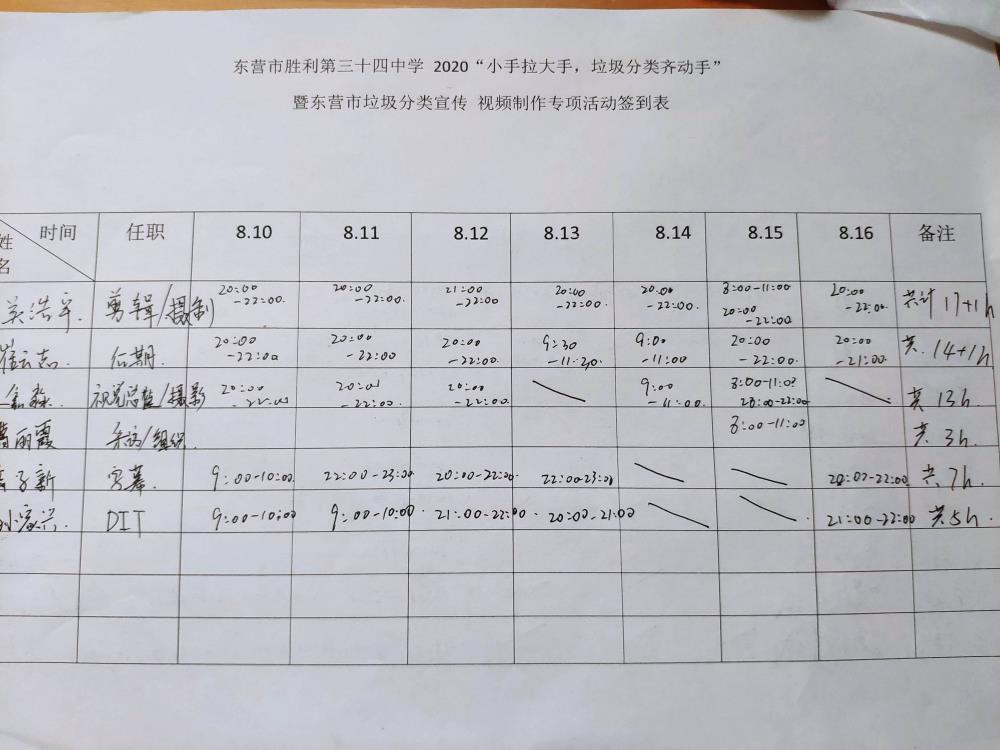 东营市胜利第三十四中学 2020“小手拉大手，垃圾分类齐动手”
暨东营市垃圾分类宣传 视频制作专项活动签到表
时间 姓名 任职 8.10 8.11 8.12 8.13 8.14 8.15 8.16 备注
剪辑/摄制 20:00-22:00. 20:00-22:00. 21:00-22:00 20:00-22:00. 20:00-22:00. 8:00-11:00 20:00-22:00 20:00-22:00. 共计 17+1h
后期. 20:00-22:00 20:00-22:00 20:00-22:00. 9:30-11:30 9:00-11:00 20:00-22:00. 20:00-21:00. 共. 14+1h
视觉总监/摄影 20:00-22:00 20:00-22:00. 20:00-22:00. 9:00-11:00. 8:00-11:00 20:00-22:00 共 13h
丽霞 采访/组织. 8:00-11:00 共. 3h
子新 字幕. 9:00-10:00. 22:00-23:00 20:00-22:00 22:00-23:00 20:00-22:00 共 7h.
DIT 9:00-10:00 9:00-10:00. 21:00-22:00. 20:00-21:00 21:00-22:00 共5h.